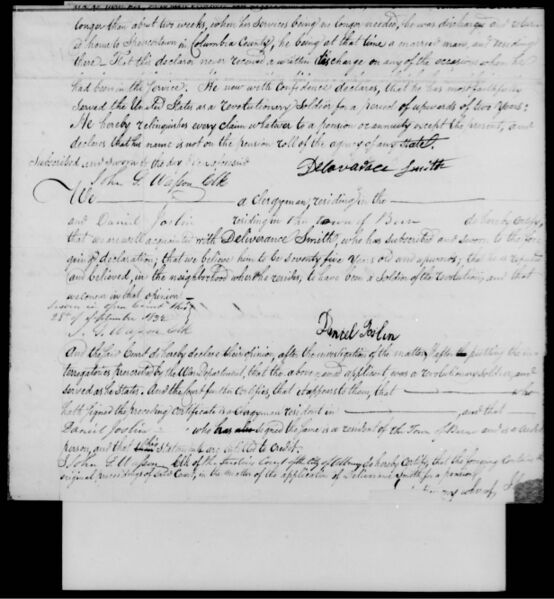 longer than about two weeks, when his services being no longer needed, he was discharged and
home to Spencertown in Columbia County, he being at that time a married man, and residing
there. That this declarant never received a written discharge on any of the occasions when he
had been in the service. He now with confidence declares, that he has most faithfully
served the United States as a revolutionary Soldier for a period of upwards of two Years:
He hereby relinquishes every claim whatever to a pension or annuity except the present, and
declares that his name is not on the pension roll of the agency of any State.
Subscribed and sworn to the day & year aforesaid
Deliverance Smith
John G. Wasson Clk
We a Clergyman, residing in the
and Daniel Joslin residing in the town of Bern do hereby Certify,
that we are well acquainted with Deliverance Smith, who has subscribed and sworn to the fore
going declaration; that we believe him to be seventy five Years old and upwards; that he is reputed
and believed, in the neighborhood where he resides, to have been a soldier of the revolution, and that
we concur in that opinion
Sworn in open Court this
28th of September 1832
J. G. Wasson Clk
Daniel Joslin
And the said Court do hereby declare their opinion, after the investigation of the matter, & after the putting the in
terrogatories prescribed by the War Department, that the above named applicant was a revolutionary soldier, and
served as he States. And the Court further Certifies, that it appears to them, that who
hath signed the preceding Certificate is a Clergyman resident in , and that
Daniel Joslin who has also signed the same is a resident of the Town of Bern and is a credible
person, and that his statements are entitled to Credit.
I John G. Wasson, Clk of the Justices Court of the City of Albany do hereby Certify, that the foregoing Contains the
original proceedings of said Court, in the matter of the application of Deliverance Smith for a pension